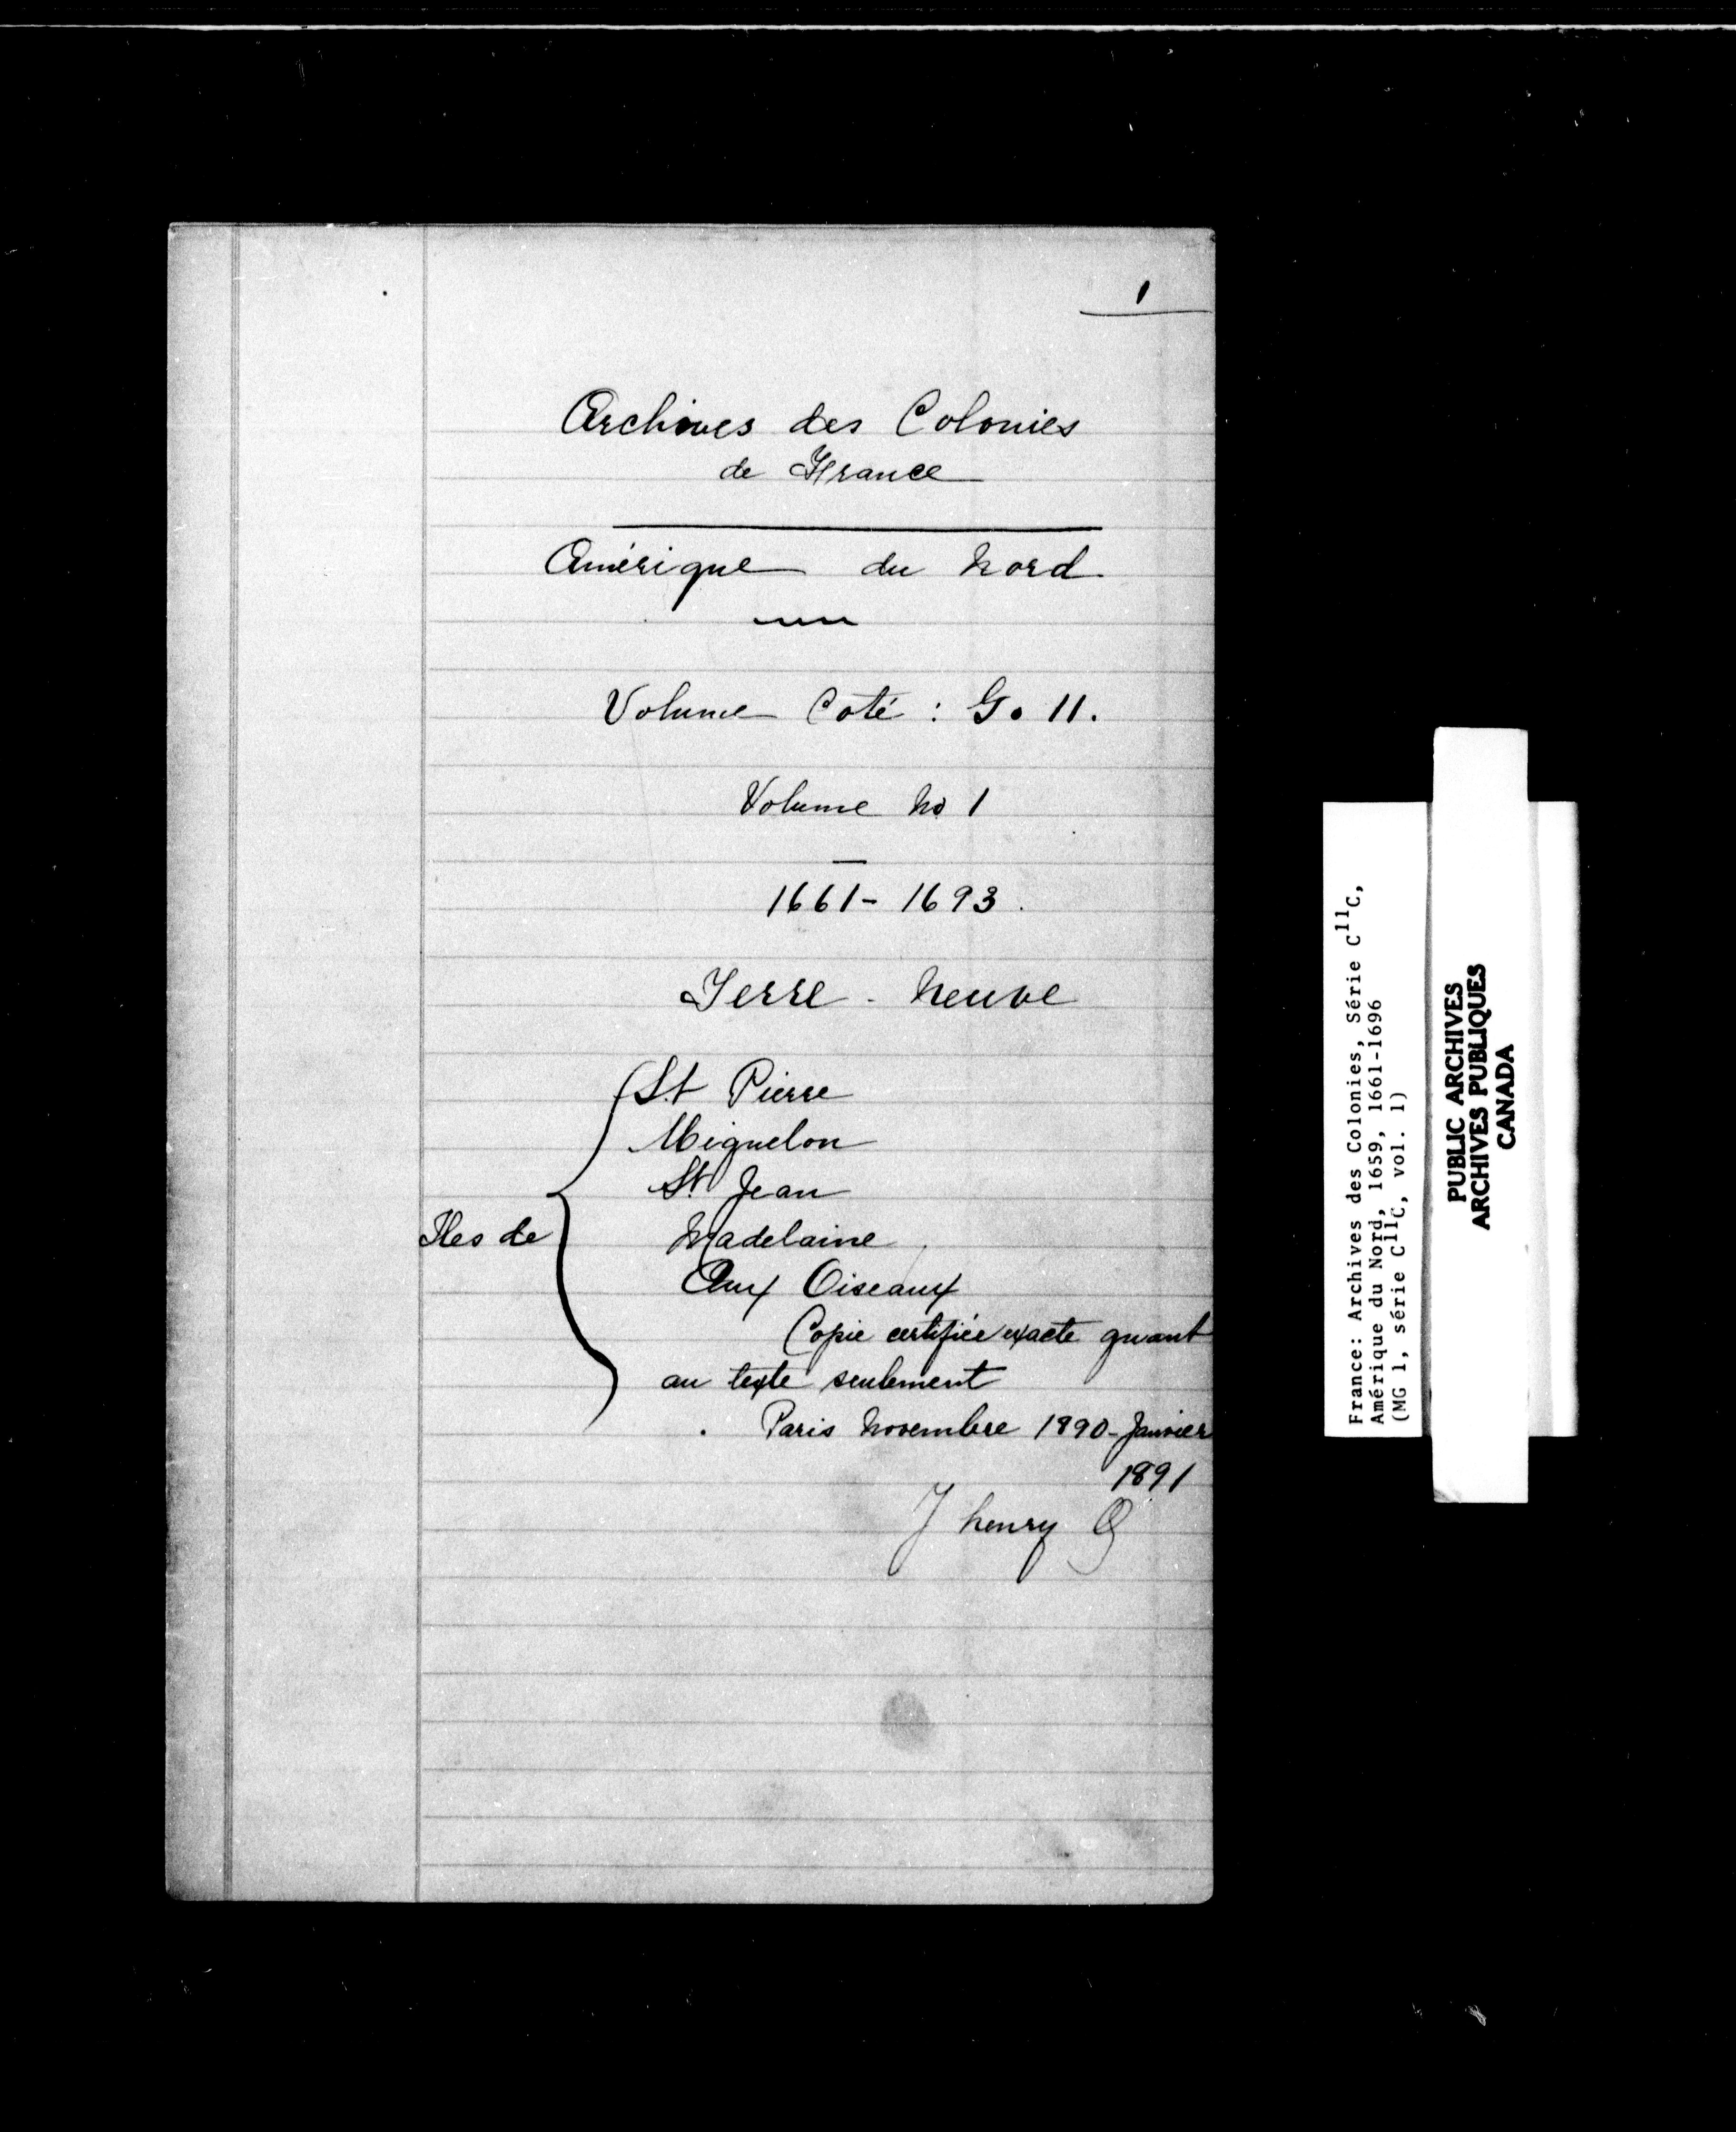 1
Archives des Colonies
de France
Amérique du Nord
Volume Coté : G. 11.
Volume No 1
1661 - 1693.
Terre - Neuve
St Pierre
Miquelon
St Jean
Iles de
Madelaine
Aux Oiseaux
Copie certifiée exacte quant
au texte seulement
Paris Novembre 1890 - Janvier
1891
J henry
France: Archives des Colonies, Série C11C,
Amérique du Nord, 1659, 1661-1696
(MG 1, série C11C, vol. 1)
PUBLIC ARCHIVES
ARCHIVES PUBLIQUES
CANADA